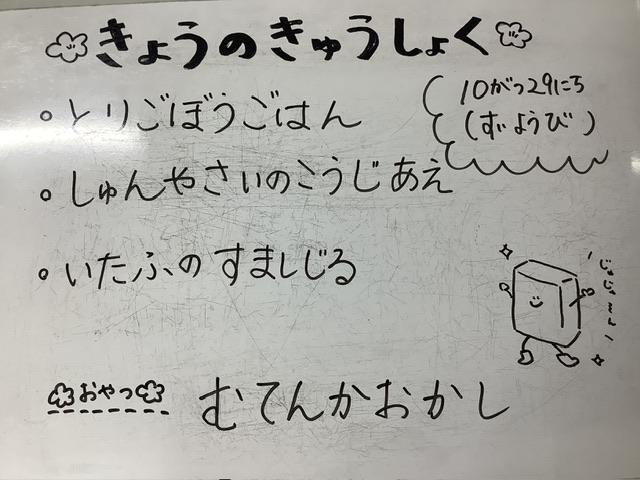 きょうのきゅうしょく
10がつ29にち
(すいようび)
。とりごぼうごはん
。しゅんやさいのこうじあえ
。いたふのすましじる
おやつ
むてんかおかし